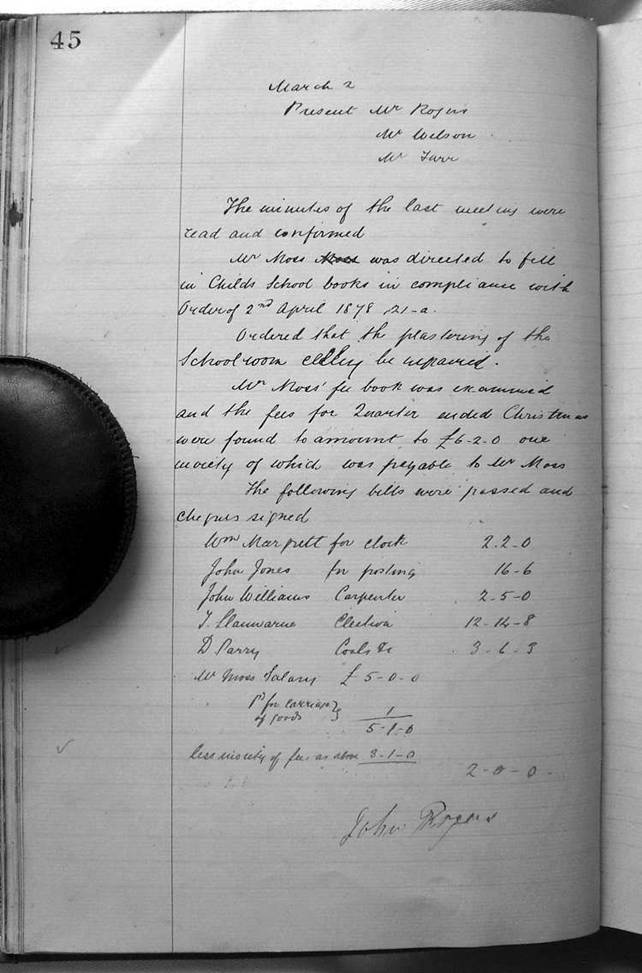 45
March 2
Present Mr Rogers
Mr Wilson
Mr Farr
The minutes of the last meeting were
read and confirmed
Mr Moss was directed to fill
in Childs School books in compliance with
Order of 2nd April 1878 21-a.
Ordered that the plastering of the
Schoolroom be repaired.
Mr Moss' fee book was examined
and the fees for Quarter ended Christmas
were found to amount to £6-2-0 one
moiety of which was payable to Mr Moss
The following bills were passed and
cheques signed
Wm Margrett for clock 2.2.0
John Jones for posting 16-6
John Williams Carpenter 2-5-0
T. Llanwarne Election 12-14-8
D Parry Coals &c 3-6-3
Mr Moss Salary £5-0-0
Pd for carriage
of goods 1
5-1-0
less moiety of fees as above 3-1-0
2-0-0-
John Rogers